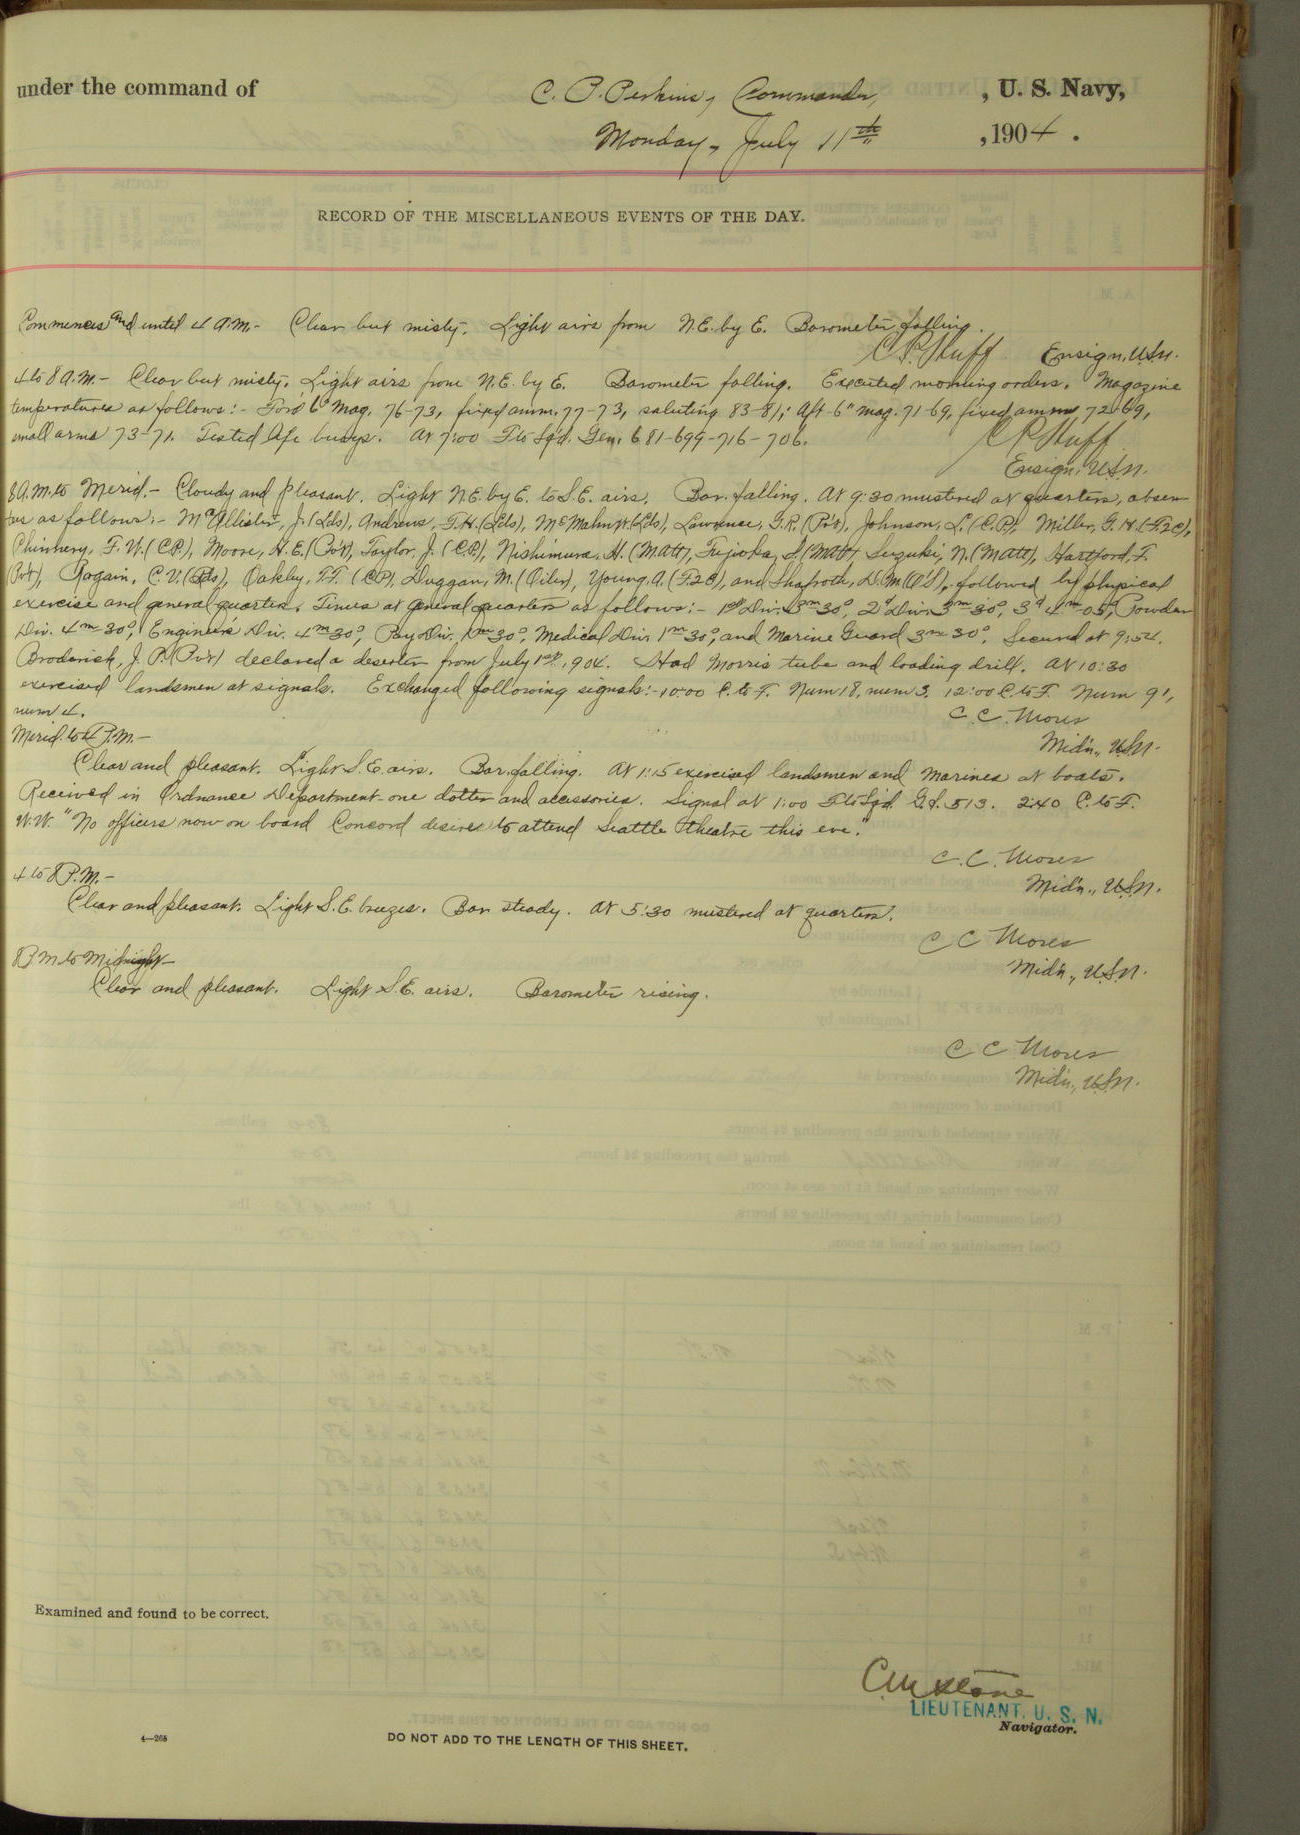 under the command of C. P. Perkins, Commander, , U. S. Navy,
Monday, July 11th , 1904 .
RECORD OF THE MISCELLANEOUS EVENTS OF THE DAY.
Commences and until 4 A.M.- Clear but misty. Light airs from N.E. by E. Barometer falling.
Ensign, U.S.N.
4 to 8 A.M.- Clear but misty. Light airs from N.E. by E. Barometer falling. Executed morning orders. Magazine
temperatures as follows:- For'd 6" Mag. 76-73, fixed amm. 77-73, saluting 83-81; Aft 6" mag. 71-69, fixed amm 72-69,
small arms 73-71. Tested life buoys. At 7:00 F. to Sq'd. Gen. 681-699-716-706.
Ensign, U.S.N.
8 A.M. to Merid.- Cloudy and pleasant. Light N.E. by E. to S.E. airs. Bar. falling. At 9:30 mustered at quarters, absen-
tees as follows:- McAllister, J. (Lds), Andrews, F.H. (Lds), McMahn, W. (Lds), Lawrence, G.R. (Pvt), Johnson, L. (C.P.), Miller, G.H. (F2C),
Chinnery, F.W. (C.P.), Moore, H.E. (Pvt), Taylor, J. (C.P.), Nishimura, H. (Matt), Fujioka, S. (Matt) Suzuki, N. (Matt), Hartford, F.
(Pvt), Ragain, C.V. (Lds), Oakley, F.F. (CP), Duggan, M. (Oiler), Young, A. (F2C), and Shafroth, D.M. (OS), followed by physical
exercise and general quarters. Times at general quarters as follows:- 1st Div. 3m 30s, 2d Div. 3m-30s, 3d 4m-05s, Powder
Div. 4m 30s, Engineer's Div. 4m 30s, Pay Div. 1m 30s, Medical Div. 1m 30s, and Marine Guard 3m 30s. Secured at 9:54.
Broderick, J. P. (Pvt) declared a deserter from July 1st, 1904. Had Morris tube and loading drill. At 10:30
exercised landsmen at signals. Exchanged following signals:- 10:00 C. to F. Num 18, num 3. 12:00 C. to F. Num 91,
num 4.
C. C. Moses
Mid'n., U.S.N.
Merid. to 4 P.M.-
Clear and pleasant. Light S.E. airs. Bar. falling. At 1:15 exercised landsmen and marines at boats.
Received in Ordnance Department one dotter and accessories. Signal at 1:00 F. to Sq'd. G.S. 513. 2:40 C. to F.
W.W. "No officers now on board Concord desires to attend Seattle theatre this eve."
C. C. Moses
Mid'n., U.S.N.
4 to 8 P.M.-
Clear and pleasant. Light S.E. breezes. Bar. steady. At 5:30 mustered at quarters.
C C Moses
Mid'n., U.S.N.
8 P.M. to Midnight-
Clear and pleasant. Light S.E. airs. Barometer rising.
C C Moses
Mid'n., U.S.N.
Examined and found to be correct.
LIEUTENANT, U. S. N.
Navigator.
4—265
DO NOT ADD TO THE LENGTH OF THIS SHEET.